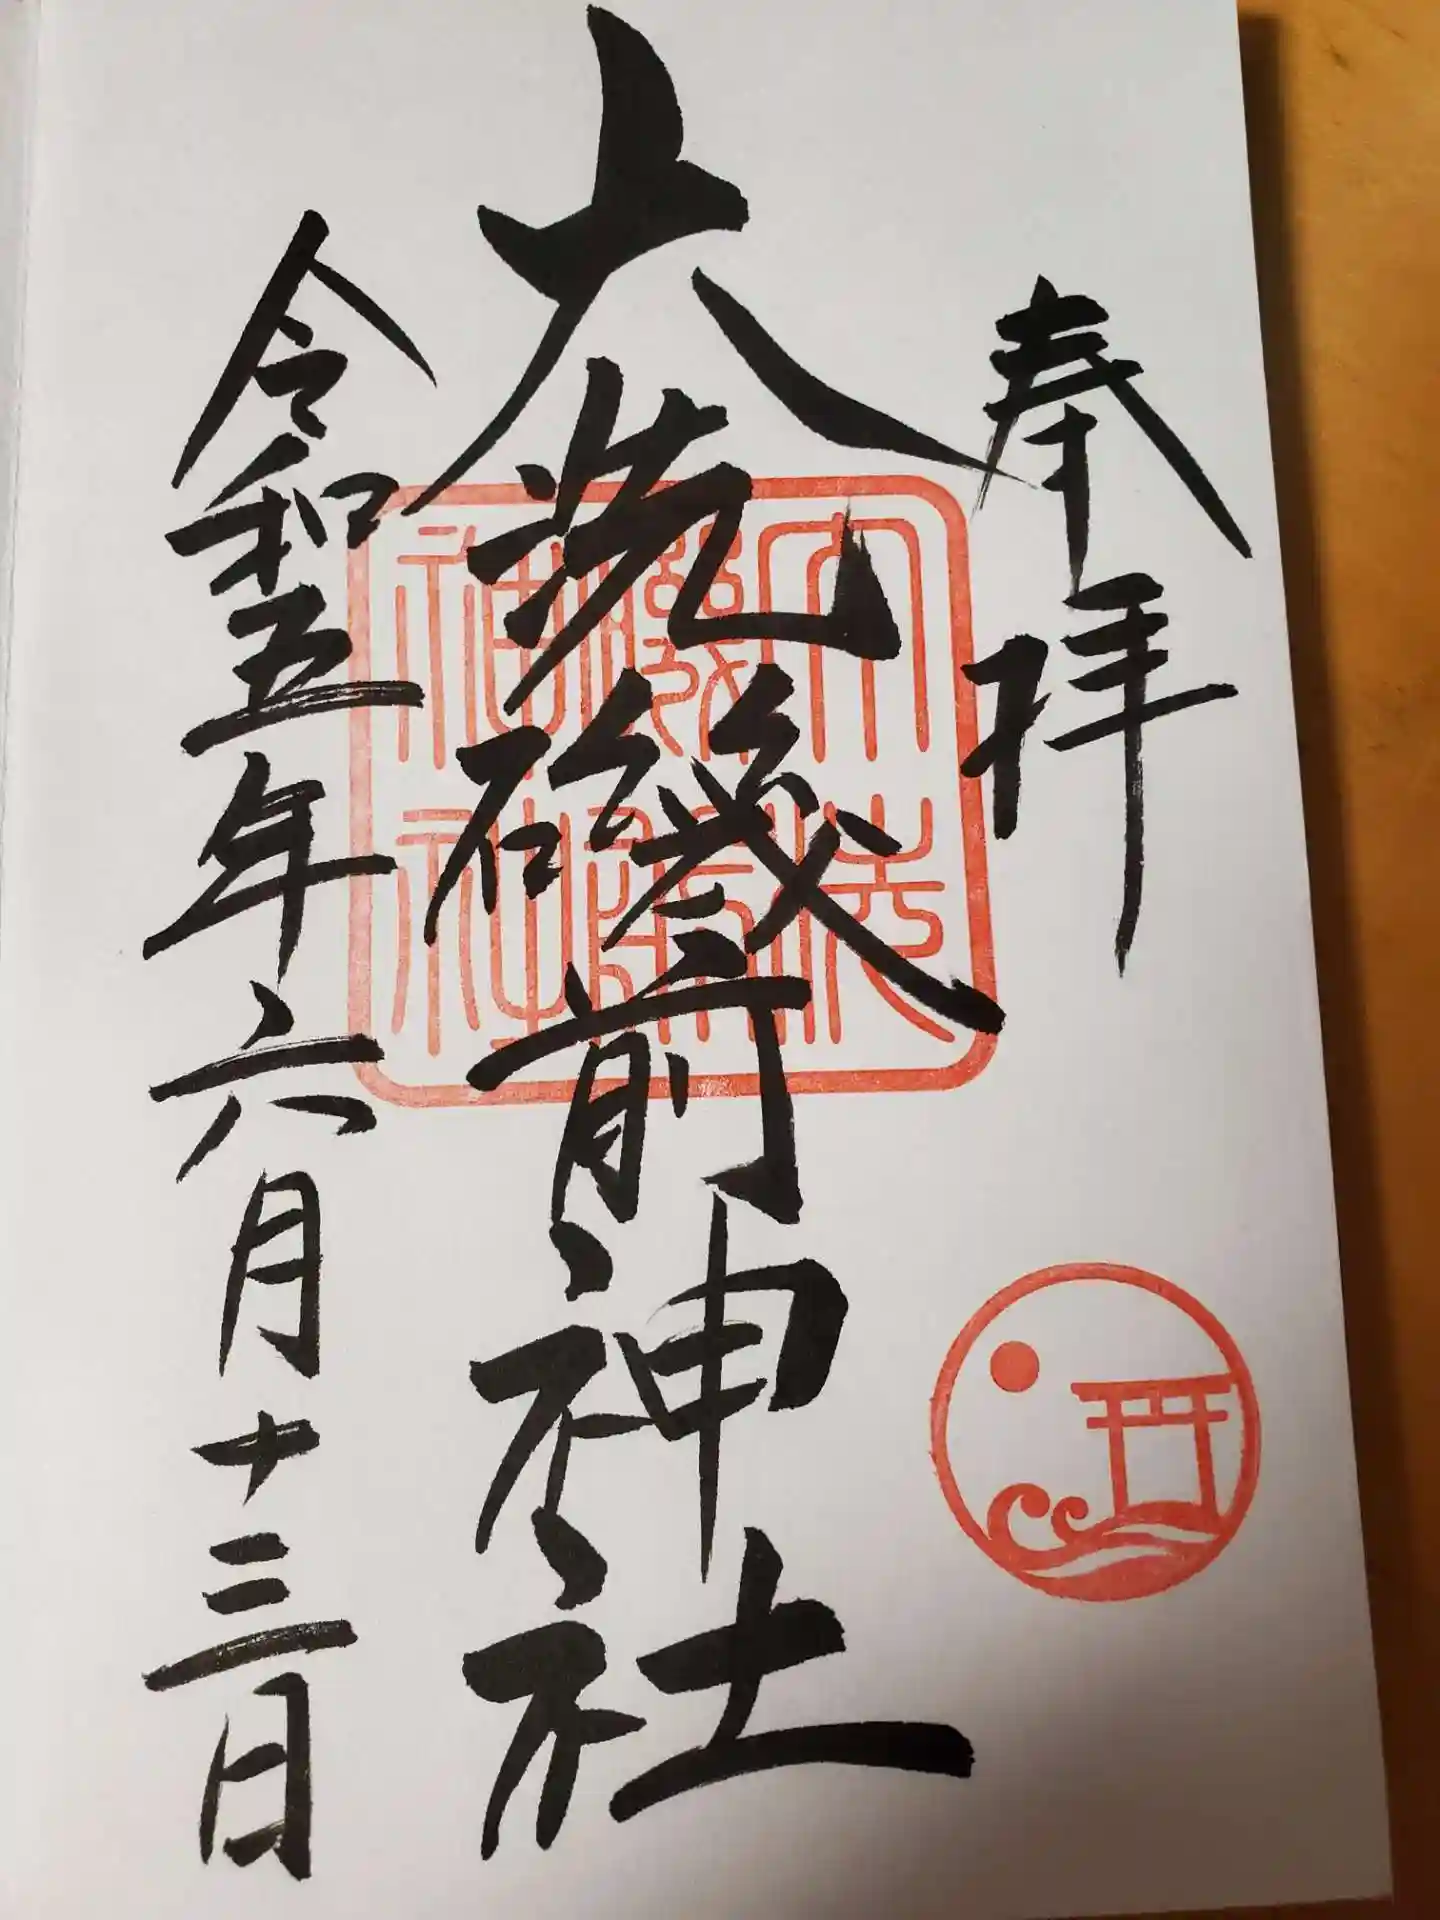 奉拝
大洗磯前神社
大洗磯前神社
令和五年六月十三日